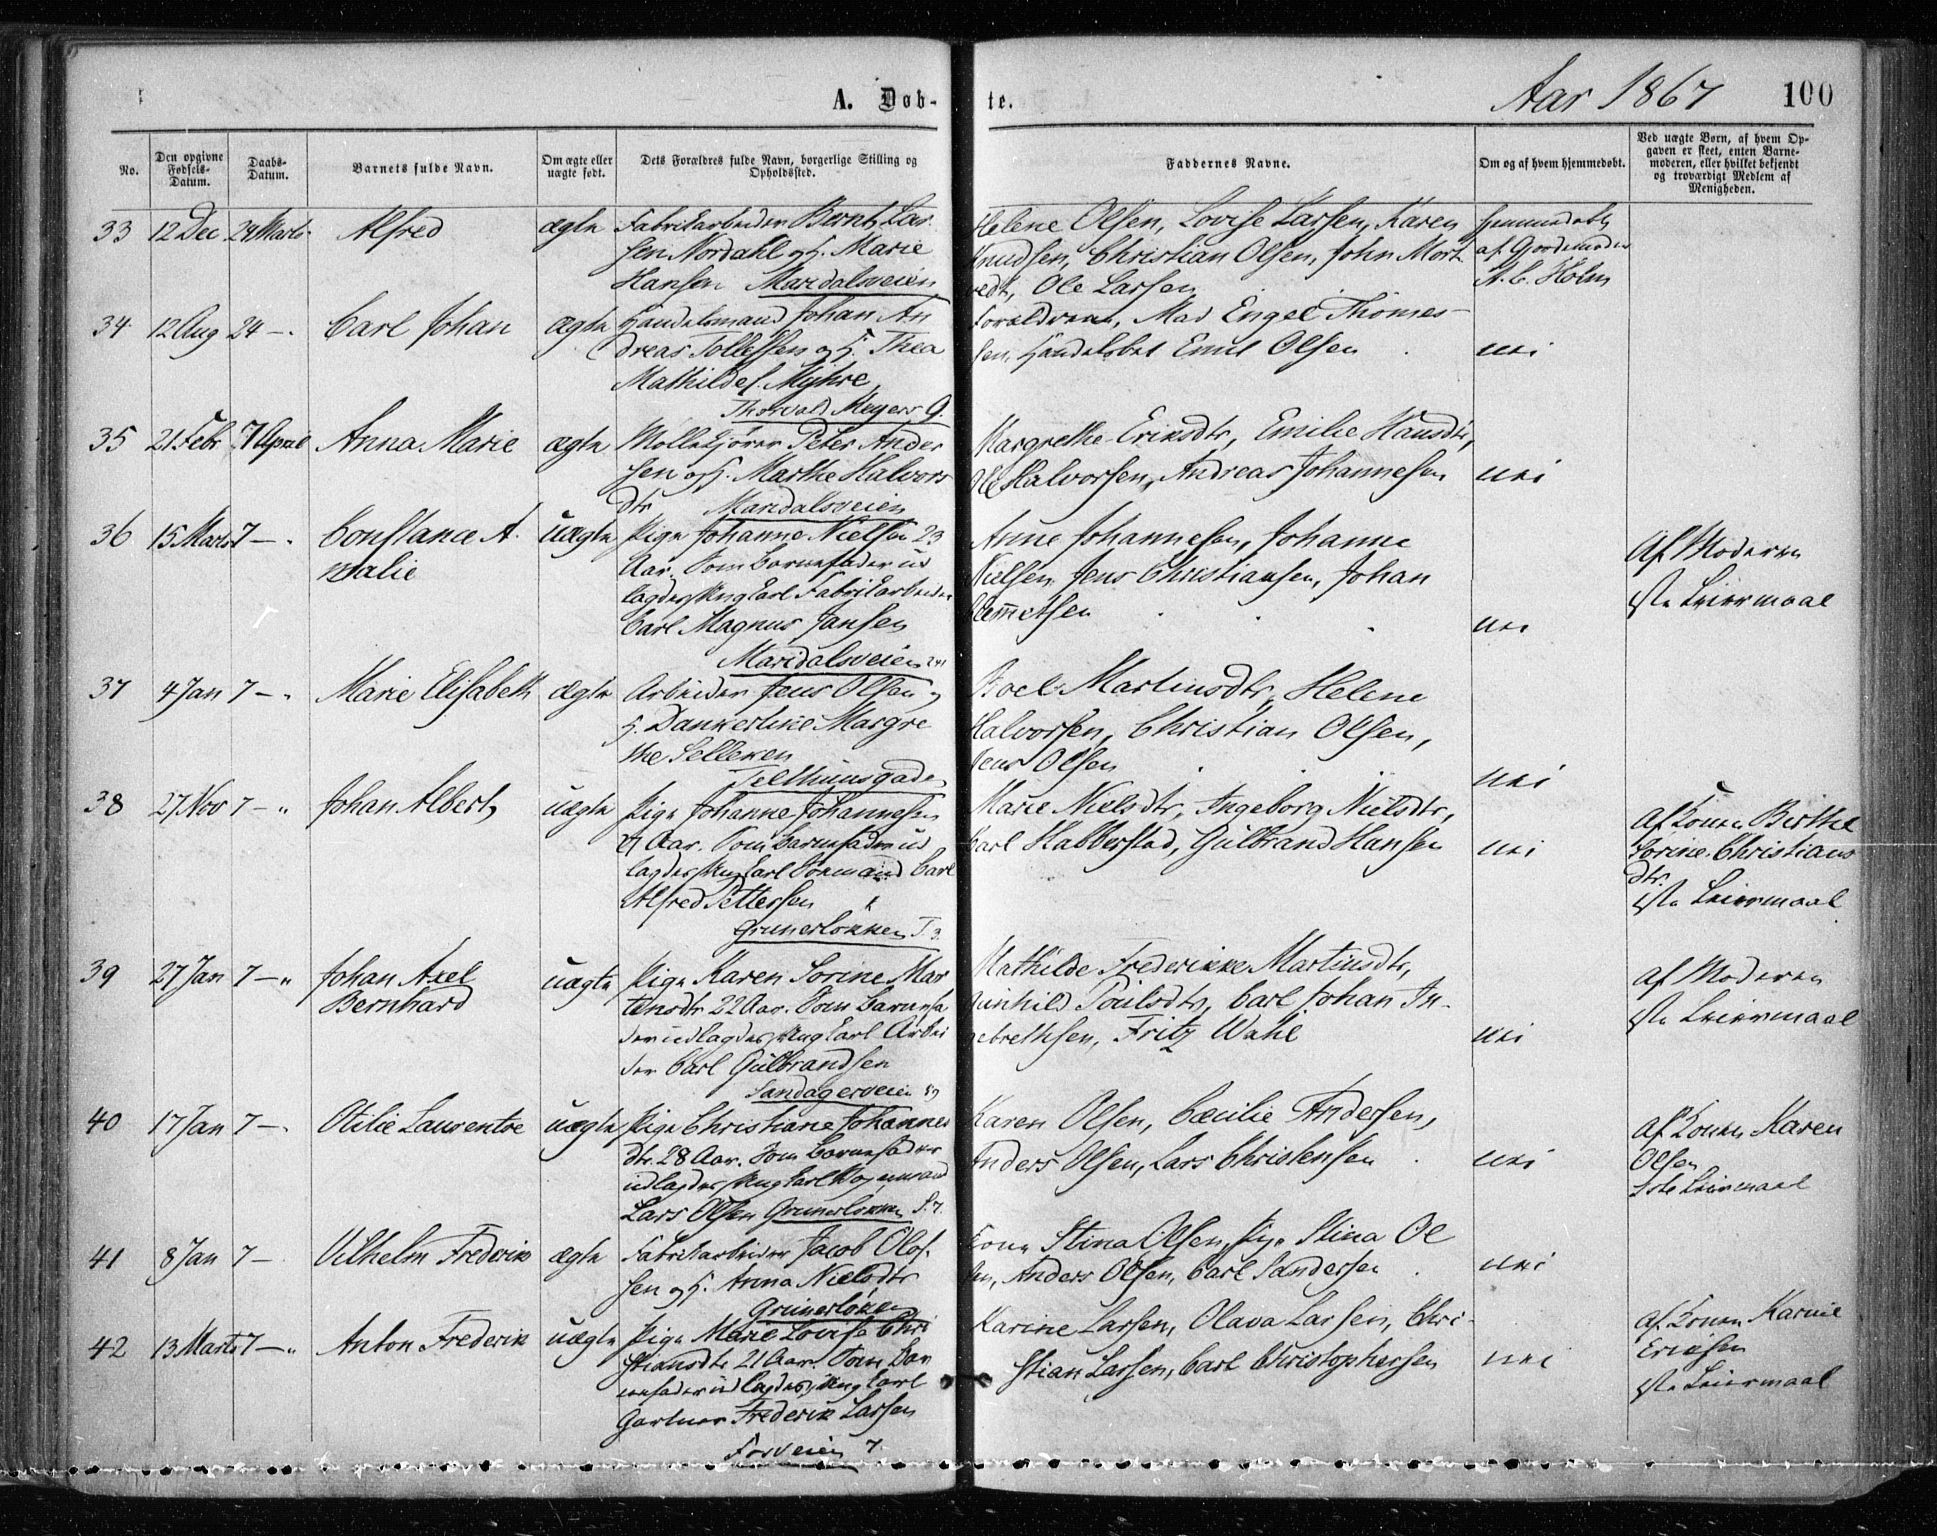 A. Døb-
te.
Aar 1867
100
No.
Den opgivne Fødsels-Datum.
Daabs-Datum.
Barnets fulde Navn.
Om ægte eller uægte født.
Dets Forældres fulde Navn, borgerlige Stilling og Opholdssted.
Faddernes Navne.
Om og af hvem hjemmedøbt.
Ved uægte Børn, af hvem Op-
gaven er skeet, enten Barne-
moderen, eller hvilket bekjendt
og troværdigt Medlem af
Menigheden.
33 12 Dec 24 Marts Alfred ægte Fabrikarbeider Bernt Lar-
sen Nordahl og H. Marie
Hansen Maridalsveien
Helene Olsen, Lovise Larsen, Karen
Knudsen, Christian Olsen, John Mort
vedt, Ole Larsen
Hjemmedøbt
af Gjordemoder
A. C. Holm
34 12 Aug 24 — Carl Johan ægte Handelsmand Johan An
dreas Tollefsen og H. Thea
Mathilde f. Myhre,
Thorvald Meyers G.
Forældrene, Mad Engel Thomes-
sen, Handelsbet Emil Olsen
nei
35 21 Febr 7 April Anna Marie ægte Møllekjører Peter Ander
sen og H. Marthe Halvors
dtr Maridalsveien
Margrethe Eriksdtr, Emilie Hansdtr,
Ole Halvorsen, Andreas Johannesen
nei
36 15 Marts 7 — Constance A-
malie
uægte Pige Johanne Nielsen 23
Aar. Som Barnefader ud
lagdes Ungkarl Fabrikarbeider
Carl Magnus Jansen
Maridalsveien 241
Anne Johannesen, Johanne
Nielsen, Jens Christiansen, Johan
Clemmetsen
nei
Af Moderen
1ste Leiermaal
37 4 Jan 7 — Marie Elisabeth ægte Arbeider Jens Olsen og
H. Dankertine Margre
the Selleken
Telthuusgaden
Boel Martinsdtr, Helene
Halvorsen, Christian Olsen,
Jens Olsen
nei
38 27 Nov 7 — Johan Albert uægte Pige Johanne Johannesen
Aar. Som Barnefader ud
lagdes Ungkarl Formand Carl
Alfred Pettersen
Grunerløkken T 3.
Marie Nielsdtr, Ingeborg Nielsdtr,
Carl Habberstad, Gulbrand Hansen
nei
Af Konen Birthe
Sorine Christians
dtr.
1ste Leiermaal
39 27 Jan 7 — Johan Axel
Bernhard
uægte Pige Karen Sorine Mar
tinsdtr 22 Aar. Som Barnefa
der udlagdes Ungkarl Arbei
der Carl Gulbrandsen
Sandagerveien 89
Mathilde Frederikke Martinsdtr,
Gunhild Paulsdtr, Carl Johan In-
gebrethsen, Fritz Wahl
nei
Af Moderen
1ste Leiermaal
40 17 Jan 7 — Otilie Laurentse uægte Pige Christiane Johannes
dtr. 28 Aar. Som Barnefader
udlagdes Ungkarl Vognmand
Lars Olsen Grunerløkken S. 7.
Karen Olsen, Cæcilie Andersen,
Anders Olsen, Lars Christensen
nei
Af Konen Karen
Olsen
1ste Leiermaal
41 8 Jan 7 — Vilhelm Frederik ægte Fabrikarbeider Jacob Olof-
sen og H. Anna Nielsdtr
Grunerløkken
Kone Stina Olsen, Pige Stina Ol
sen, Anders Olsen, Carl Sandersen
nei
42 13 Marts 7 — Anton Frederik uægte Pige Marie Lovise Chri
stiansdtr 21 Aar. Som Bar
nefader udlagdes Ungkarl
Gartner Frederik Larsen
Fosveien 7
Karine Larsen, Olava Larsen, Chri-
stian Larsen, Carl Christophersen
nei
Af Konen Karine
Eriksen
1ste Leiermaal